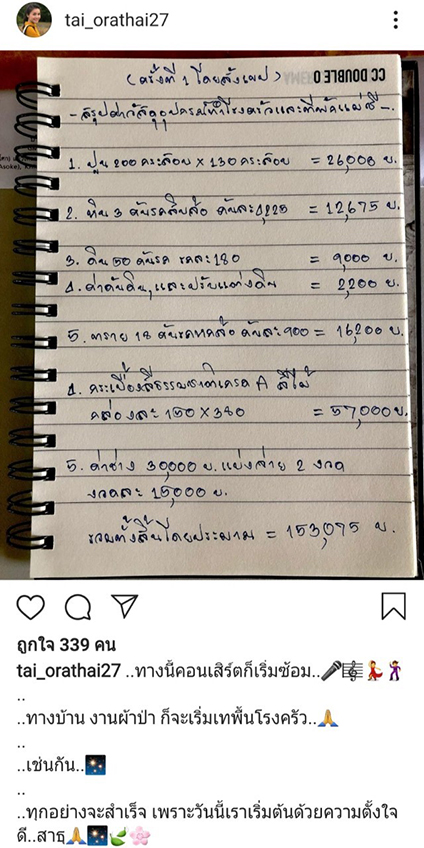 tai_orathai27
CC DOUBLE O
(ครั้งที่ 1 โดยสังเขป)
-สรุปค่าวัสดุอุปกรณ์ทำโรงครัวและที่พักแม่ชี-.
1. ปูน 200 กระสอบ x 130 กระสอบ = 26,000 บ.
2. หิน 3 คันรถสิบล้อ คันละ 4,225 = 12,675 บ.
3. ดิน 50 คันรถ รถละ 180 = 9,000 บ.
4. ค่าดันดิน, และปรับแต่งดิน = 2,200 บ.
5. ทราย 18 คันรถหกล้อ คันละ 900 = 16,200 บ.
4. กระเบื้องสีธรรมชาติเกรด A สีไม้
กล่องละ 150 x 380 = 57,000 บ.
5. ค่าช่าง 30,000 บ. แบ่งจ่าย 2 งวด
งวดละ 15,000 บ.
รวมทั้งสิ้นโดยประมาณ = 153,075 บ.
ถูกใจ 339 คน
tai_orathai27 ..ทางนี้คอนเสิร์ตก็เริ่มซ้อม..🎤🎼💃🕺
..
..ทางบ้าน งานผ้าป่า ก็จะเริ่มเทพื้นโรงครัว..🙏
..
..เช่นกัน..🎇
..
..ทุกอย่างจะสำเร็จ เพราะวันนี้เราเริ่มต้นด้วยความตั้งใจ
ดี..สาธุ🙏🎇🍃🌸